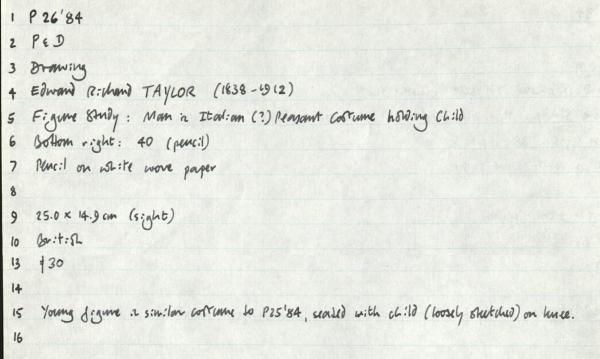 1 P 26'84
2 P & D
3 Drawing
4 Edward Richard TAYLOR (1838-1912)
5 Figure Study : Man in Italian (?) Peasant Costume holding Child
6 Bottom right: 40 (pencil)
7 Pencil on white wove paper
8
9 25.0 x 14.9 cm (sight)
10 British
13 £30
14
15 Young figure in similar costume to P25'84, seated with child (loosely sketched) on knee.
16